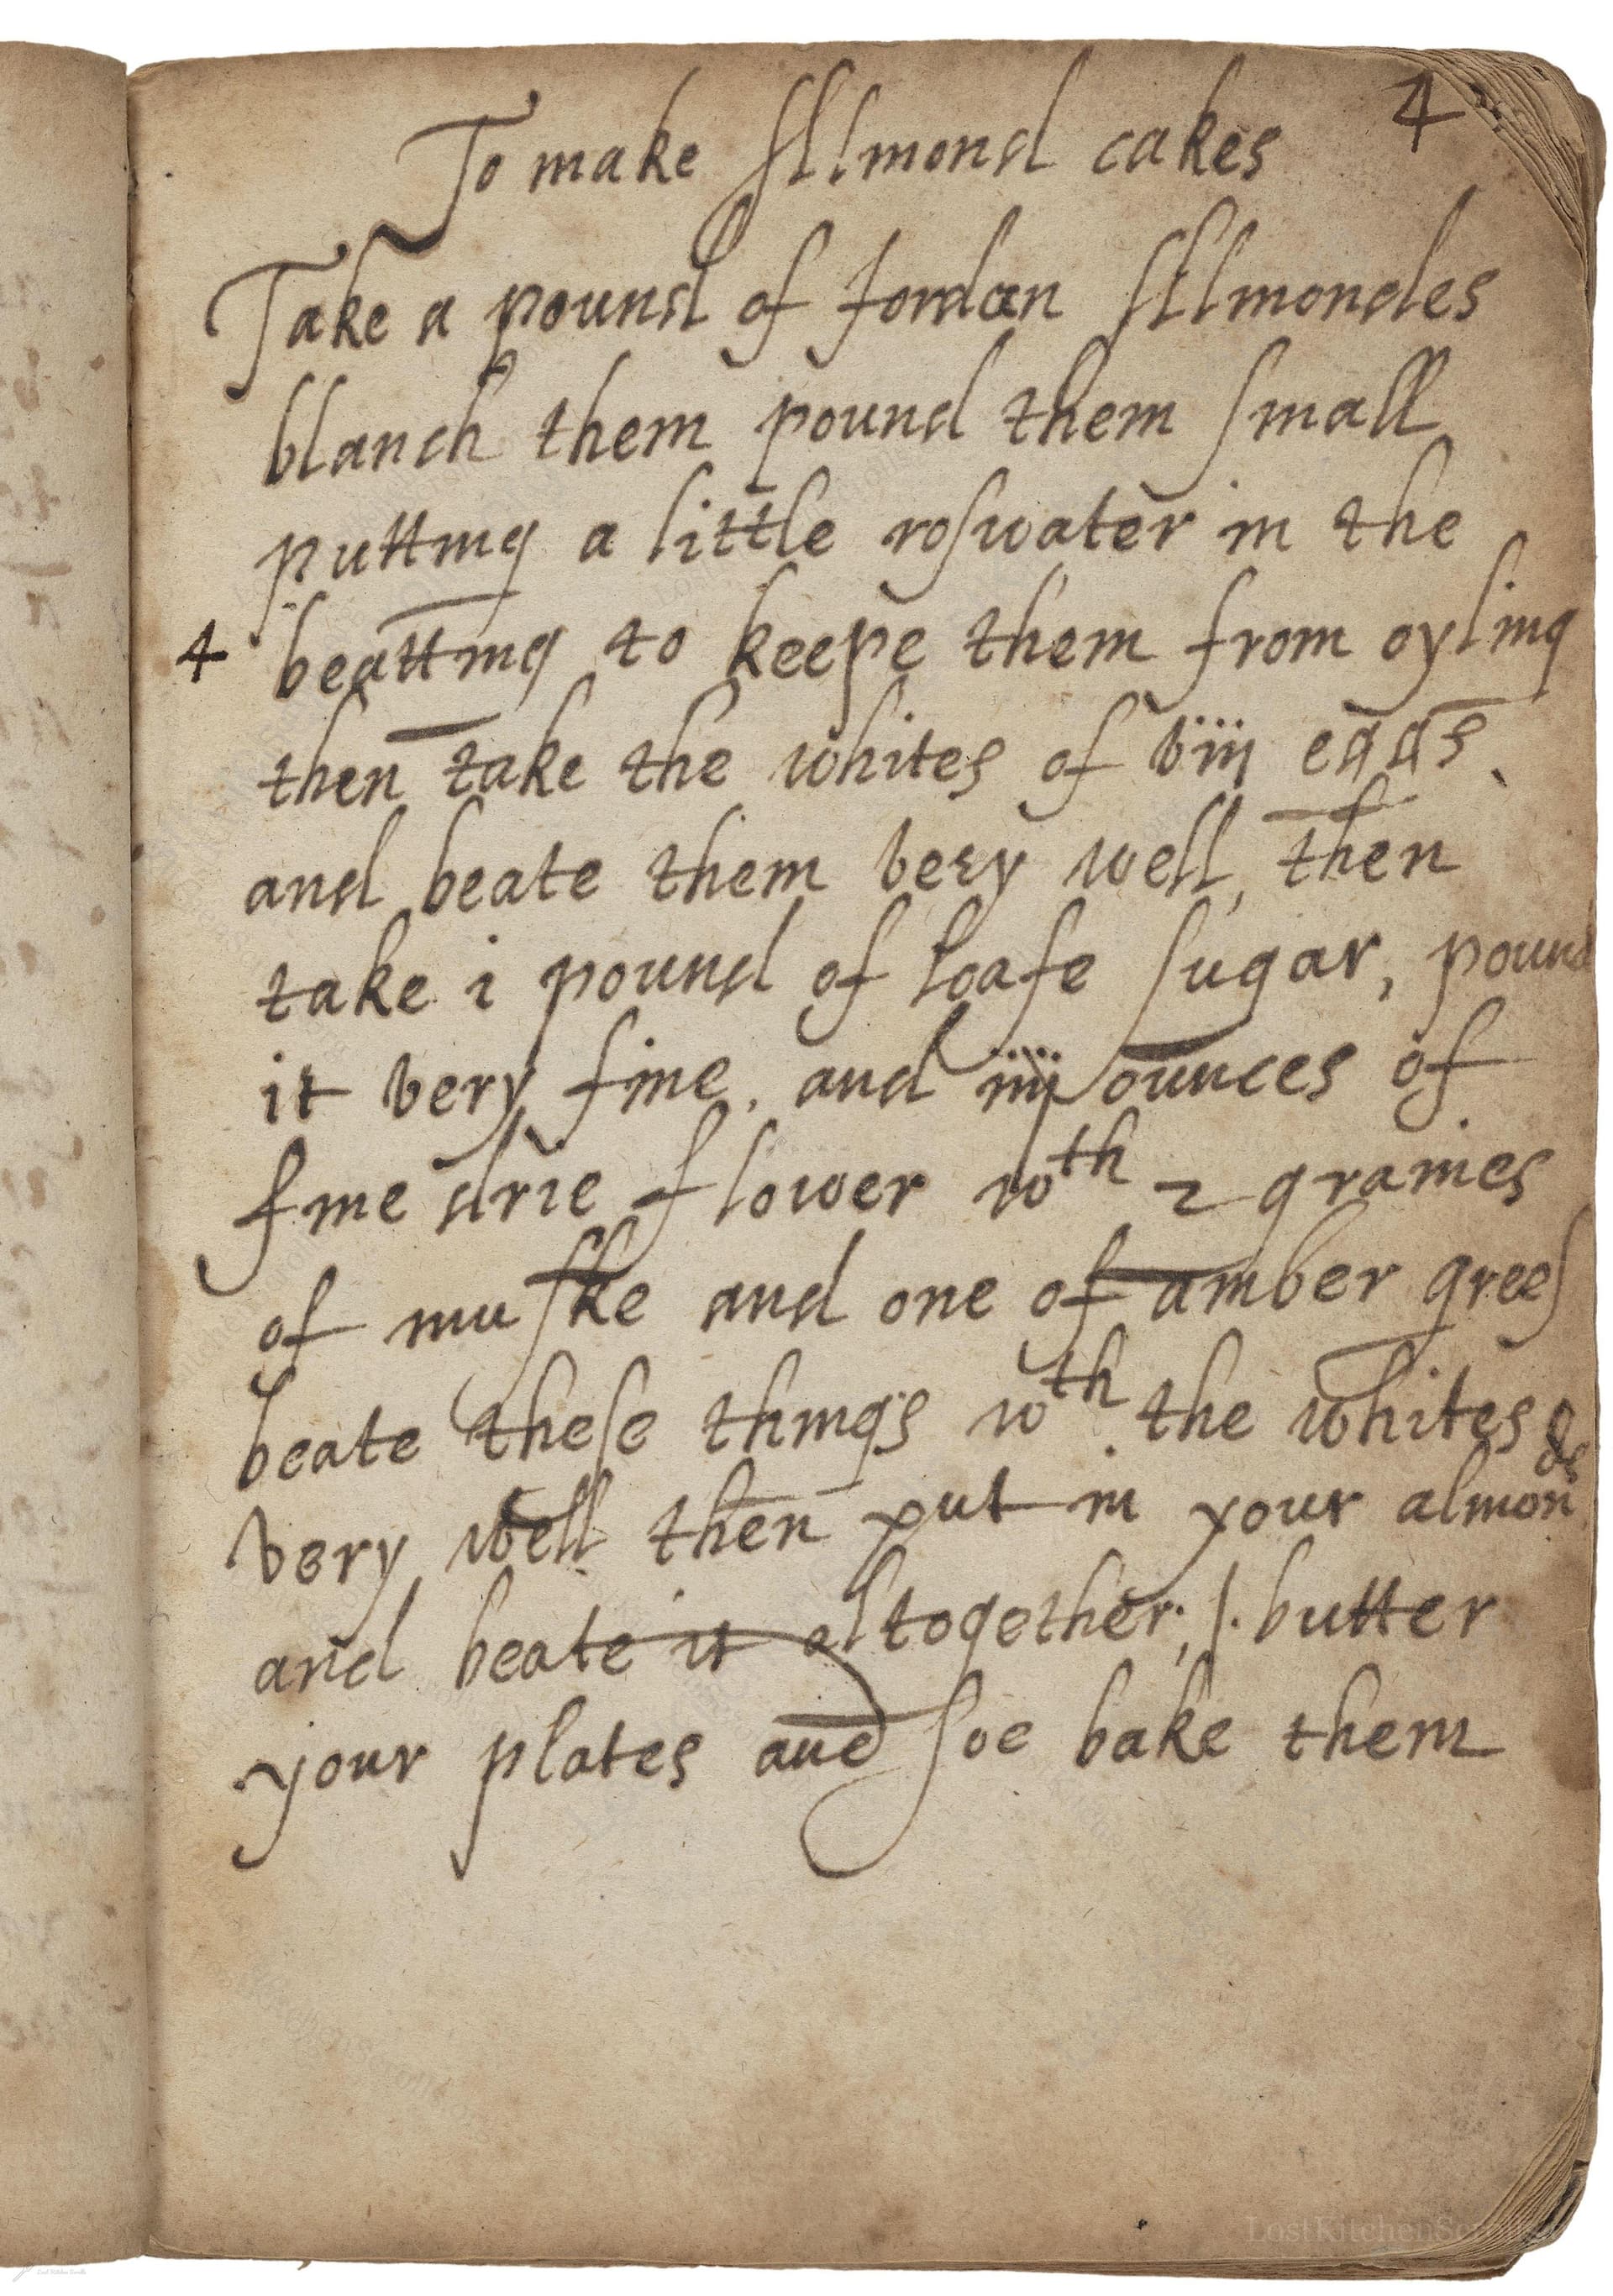 4
To make Allmond cakes
Take a pound of Jordan Allmondes
blanch them pound them small
putting a little roswater in the
4 beatting to keepe them from oyling
then take the whites of viii eggs
and beate them very well, then
take i pound of loafe sugar, pound
it very fine, and iiij ounces of
fine drie flower wth 2 graines
of muske and one of amber grees
beate these things wth the whites
very well then put in your almondes
and beate it altogether, /. butter
your plates and soe bake them
LostKitchenSc